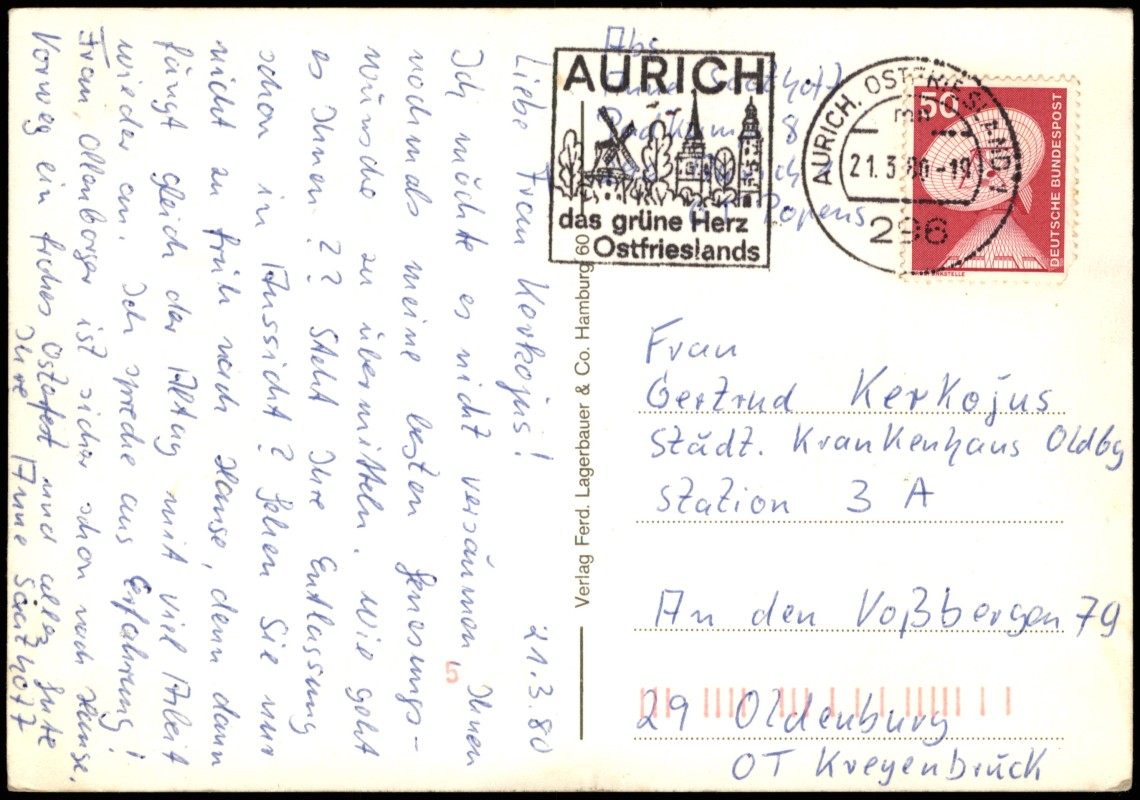 21.3.80
Liebe Frau Kerkojus!
Ich möchte es nicht versäumen Ihnen
nochmals meine besten Genesungs-
wünsche zu übermitteln. Wie geht
es Ihnen?? Steht Ihre Entlassung
schon in Aussicht? Gehen Sie nur
nicht zu früh nach Hause, denn dann
fängt gleich der Alltag mit viel Arbeit
wieder an. Ich spreche aus Erfahrung!
Frau ist sicher schon nach Hause.
Vorweg ein frohes Osterfest und alles Gute
Ihre Anne Saathoff
Verlag Ferd. Lagerbauer & Co. Hamburg 60
5
Abs
Anne Saathoff
8
Popens
AURICH
das grüne Herz
Ostfrieslands
AURICH, OSTFRIESLAND 1
mn
21.3.80-19
296
50
DEUTSCHE BUNDESPOST
Frau
Gertrud Kerkojus
Städt. Krankenhaus Oldbg
Station 3 A
An den Voßbergen 79
29 Oldenburg
OT Kreyenbrück